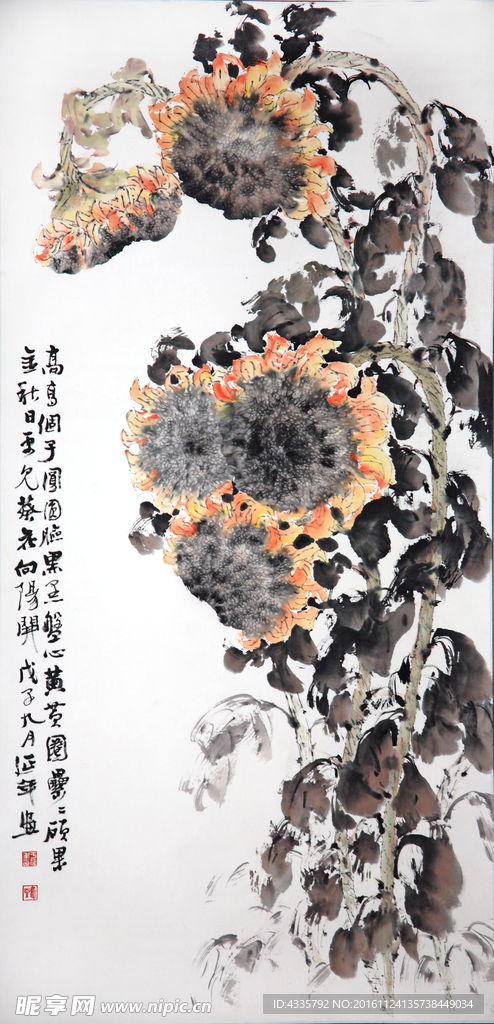 高高個子圓圓臉黑黑盤心黃黃圈疊疊碩果
金秋日更見葵花向陽開戊子九月延年畫
昵享网 www.nipic.cn
ID:4335792 NO:20161124135738449034